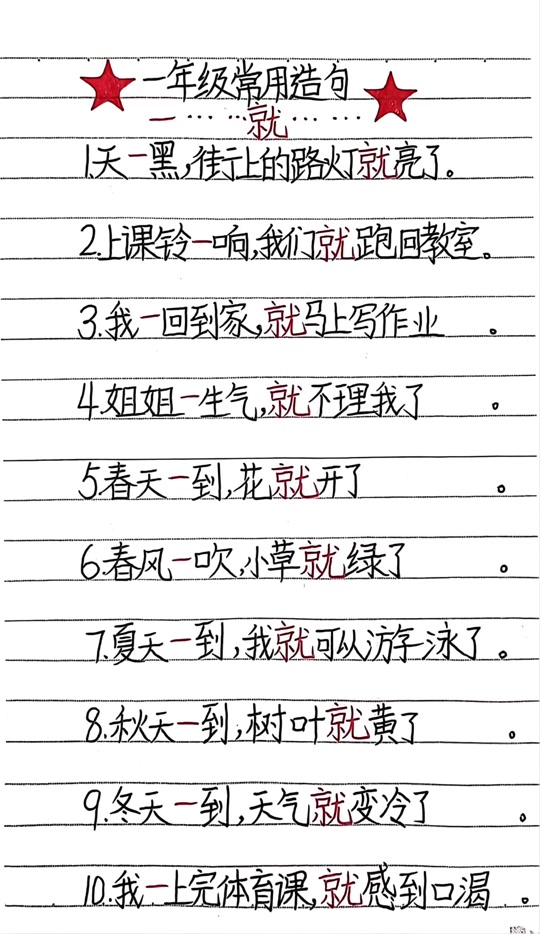 一年级常用造句
一………就………
1.天一黑,街上的路灯就亮了。
2.上课铃一响,我们就跑回教室。
3.我一回到家,就马上写作业。
4.姐姐一生气,就不理我了。
5.春天一到,花就开了。
6.春风一吹,小草就绿了。
7.夏天一到,我就可以游泳了。
8.秋天一到,树叶就黄了。
9.冬天一到,天气就变冷了。
10.我一上完体育课,就感到口渴。